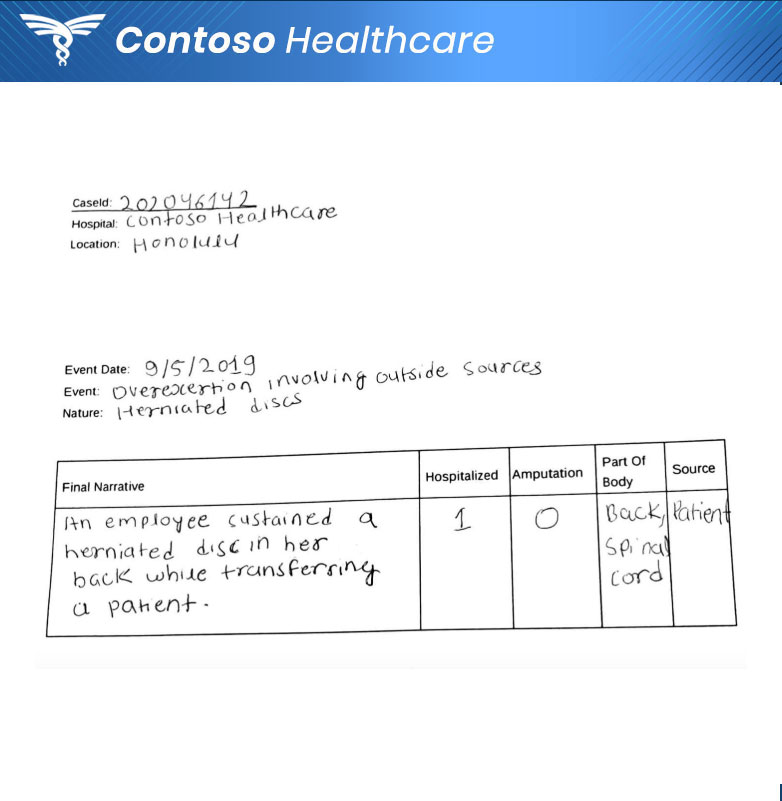 Contoso Healthcare
CaseId: 202046142
Hospital: Contoso Healthcare
Location: Honolulu
Event Date: 9/5/2019
Event: Overexertion involving outside sources
Nature: Herniated discs
Final Narrative Hospitalized Amputation Part Of Body Source
An employee sustained a 1 0 Back, Patient
herniated disc in her Spinal
back while transferring cord
a patient.